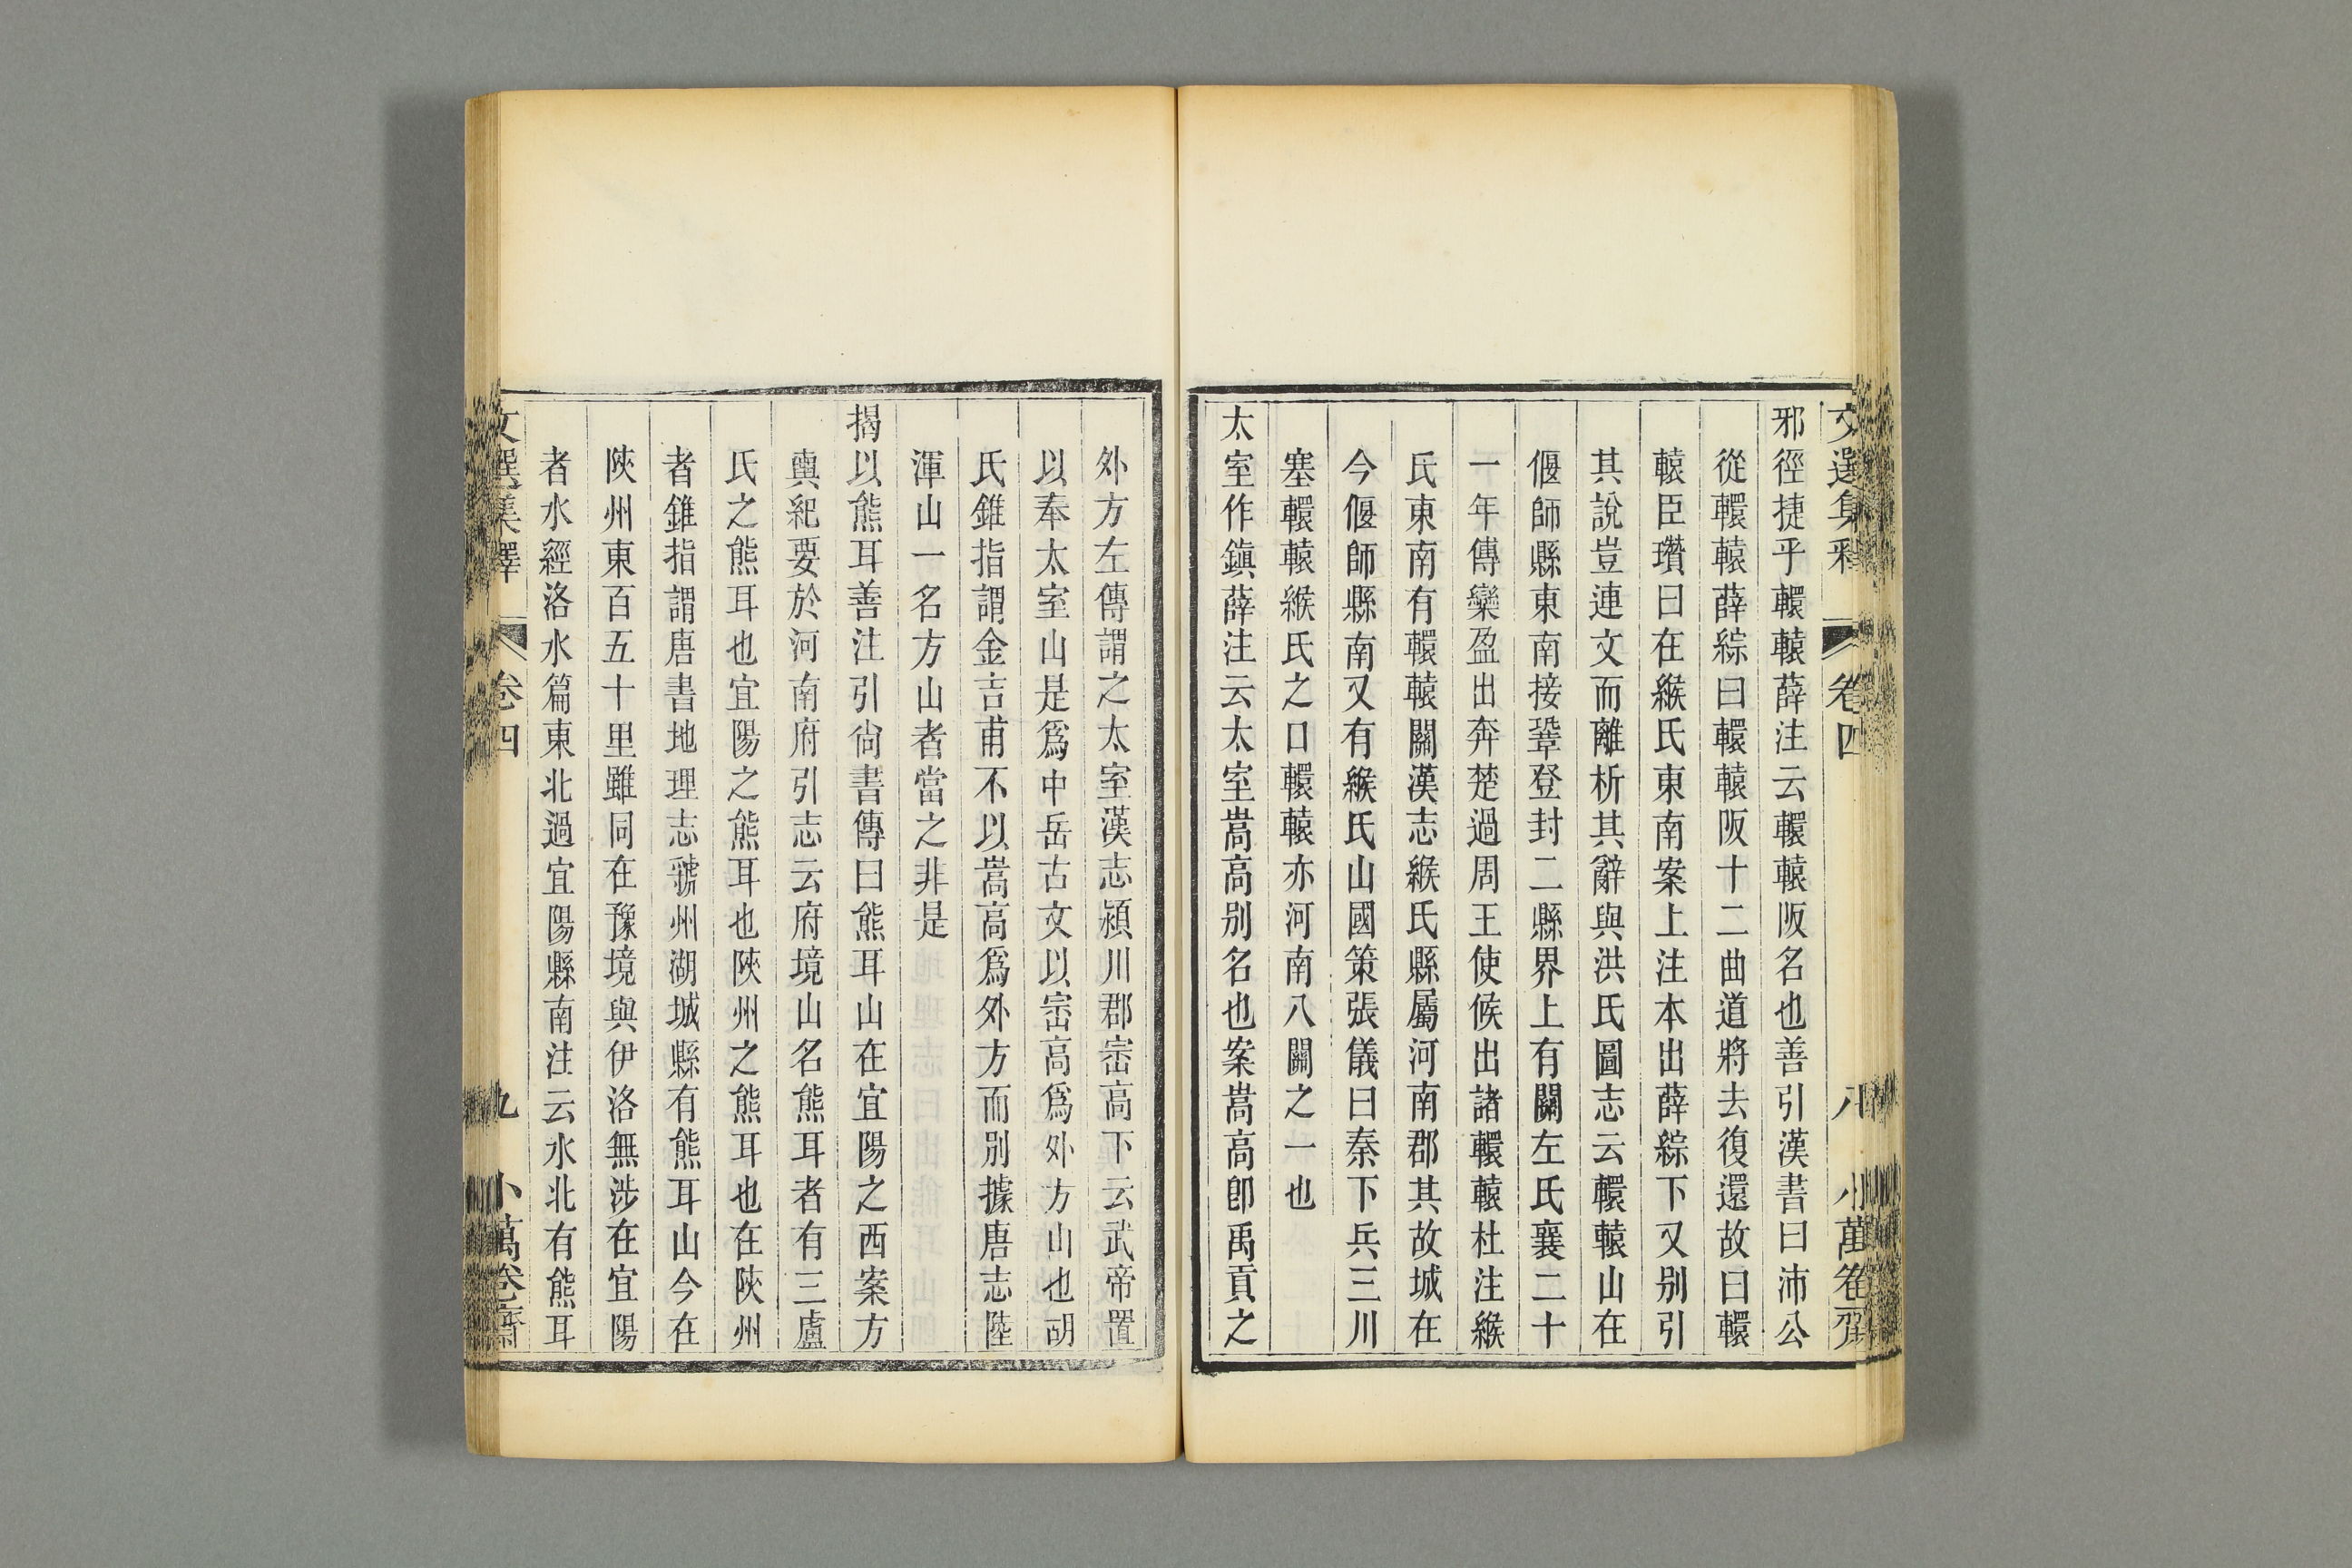 文選集釋 卷四 八 小萬卷齋
邪徑捷乎轘轅薛注云轘轅阪名也善引漢書曰沛公
從轘轅薛綜曰轘轅阪十二曲道將去復還故曰轘
轅臣瓚曰在緱氏東南案上注本出薛綜下又别引
其說豈連文而離析其辭與洪氏圖志云轘轅山在
偃師縣東南接鞏登封二縣界上有關左氏襄二十
一年傳欒盈出奔楚過周王使候出諸轘轅杜注緱
氏東南有轘轅關漢志緱氏縣屬河南郡其故城在
今偃師縣南又有緱氏山國策張儀曰秦下兵三川
塞轘轅緱氏之口轘轅亦河南八關之一也
太室作鎮薛注云太室嵩高别名也案嵩高卽禹貢之
外方左傳謂之太室漢志潁川郡崈高下云武帝置
以奉太室山是爲中岳古文以崈高爲外方山也胡
氏錐指謂金吉甫不以嵩高爲外方而别據唐志陸
渾山一名方山者當之非是
揭以熊耳善注引尙書傳曰熊耳山在宜陽之西案方
輿紀要於河南府引志云府境山名熊耳者有三盧
氏之熊耳也宜陽之熊耳也陜州之熊耳也在陜州
者錐指謂唐書地理志虢州湖城縣有熊耳山今在
陜州東百五十里雖同在豫境與伊洛無涉在宜陽
者水經洛水篇東北過宜陽縣南注云水北有熊耳
文選集釋 卷四 九 小萬卷齋